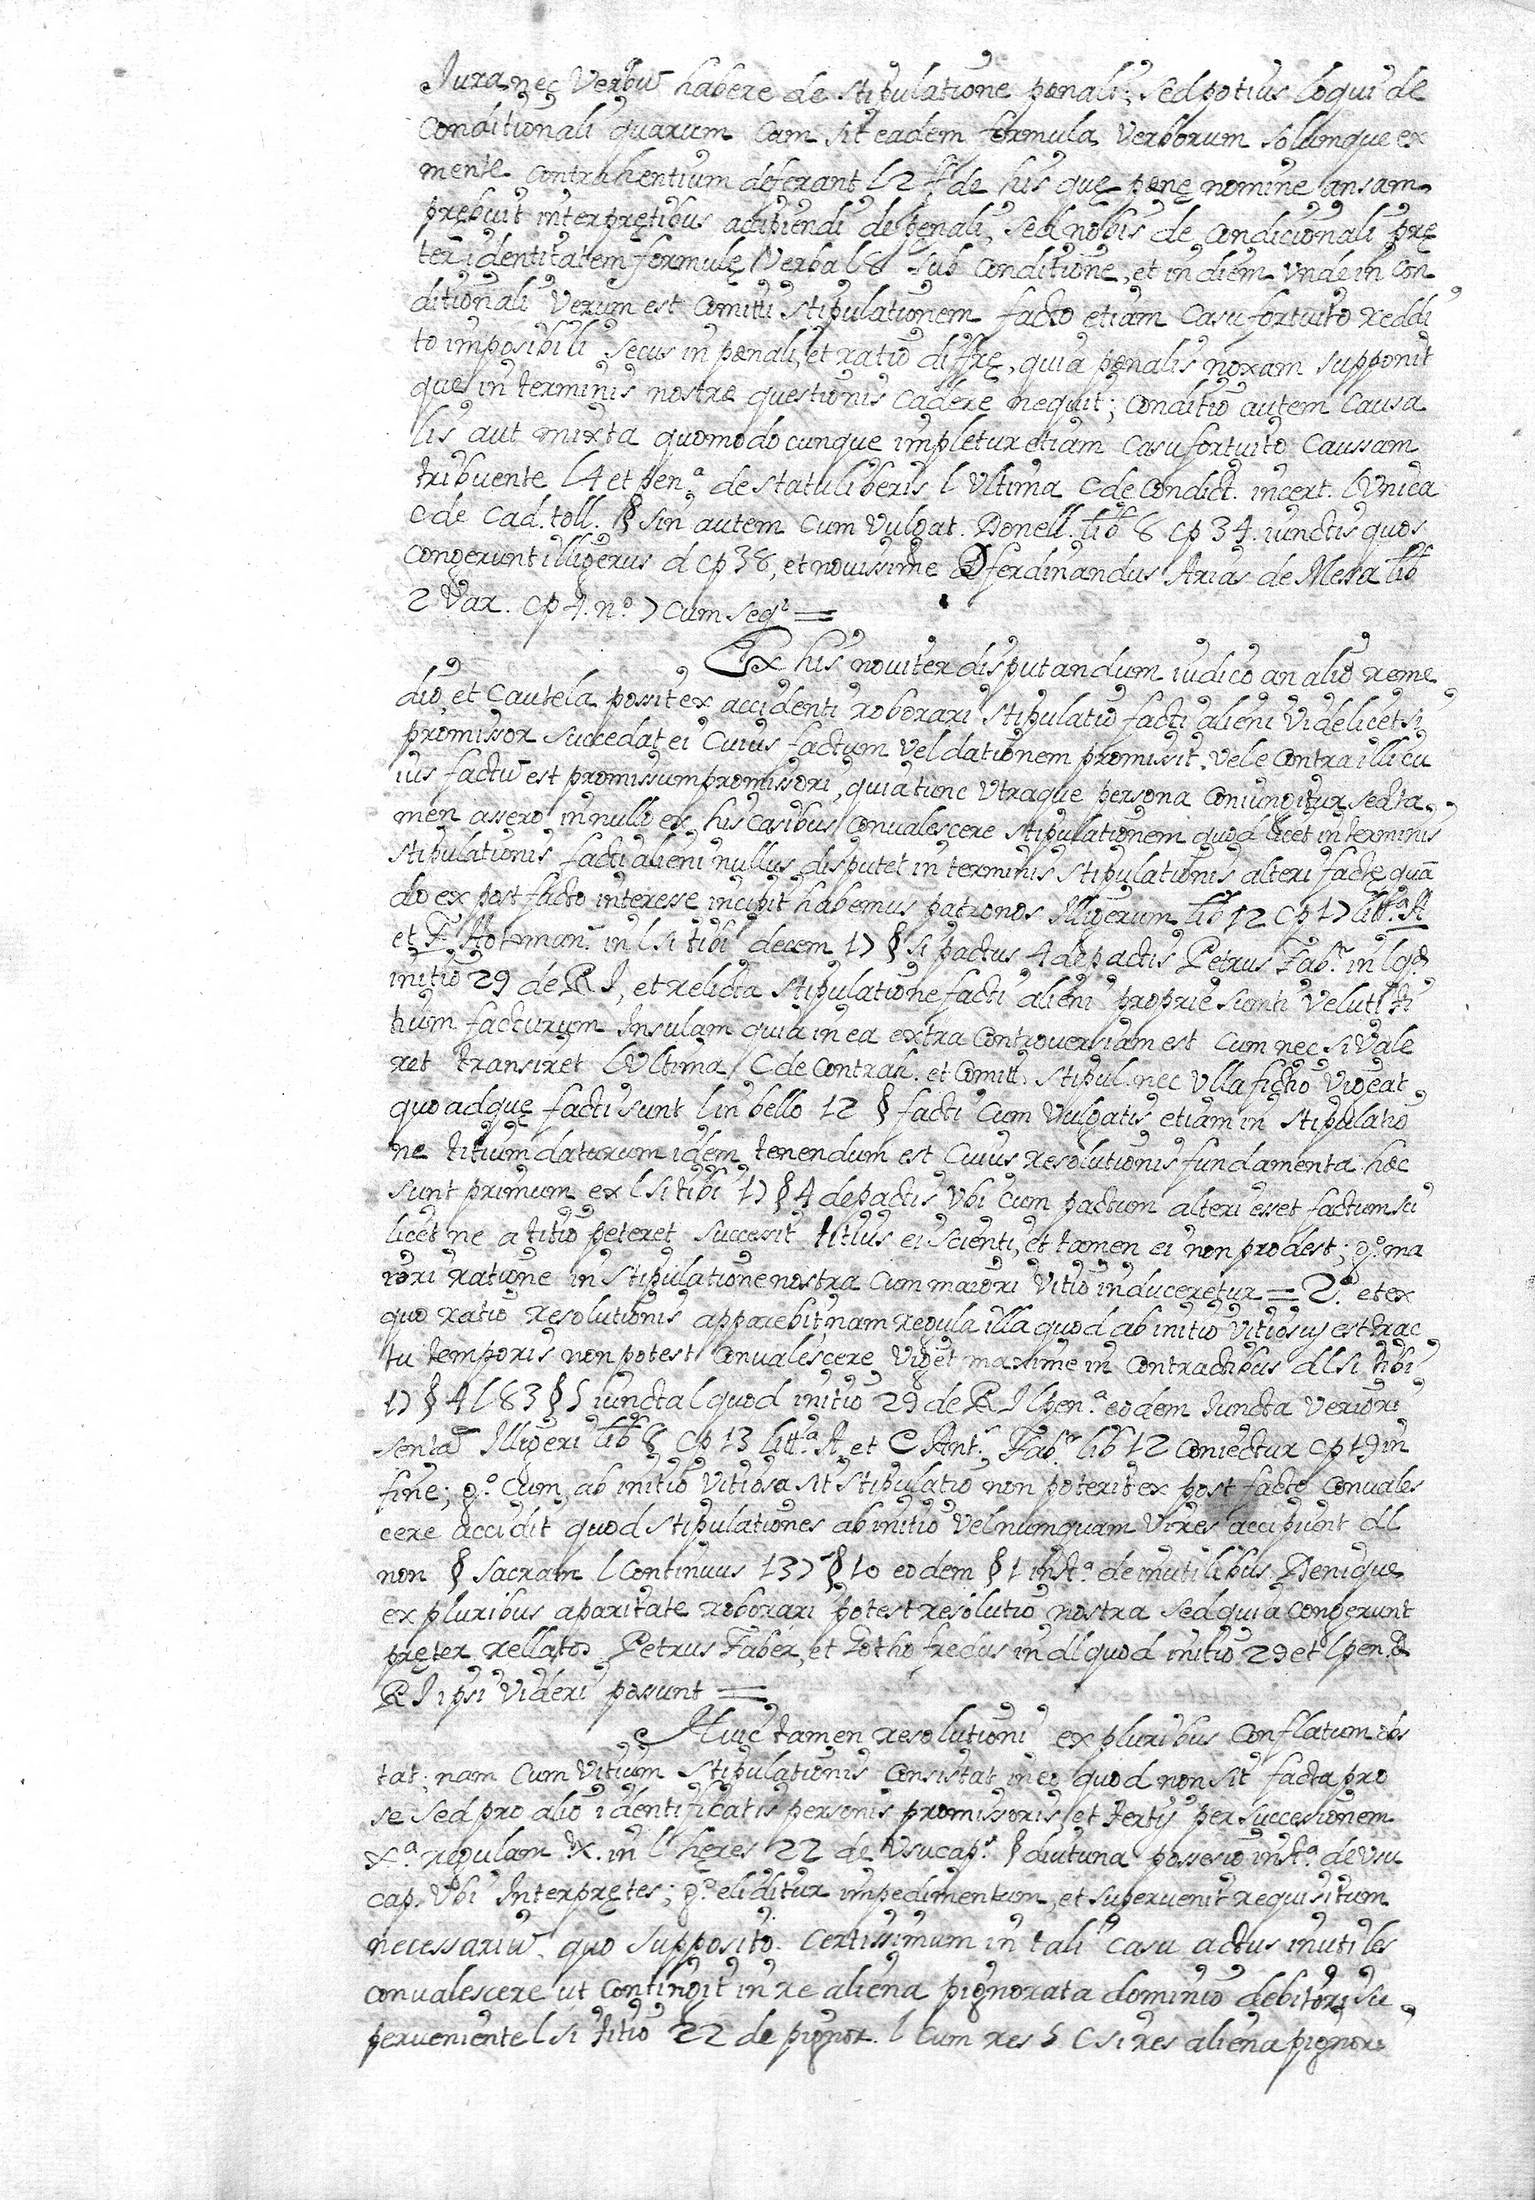 Jura nec Verbũ habere de stipulatione penali; sed potius loqui de
Conditionali quarum Cam sit eadem formula Verborum solumque ex
mente Contrahentium deferant l 2 ff de his quę penę nomine ansam
prębuit interpretibus accipiendi de penali, sed nobis de condicionali prę
ter identitatem formulę Verba l 8 sub Conditione, et in diem Vnde in Con
ditionali Verum est Comitti stipulationem facto etiam Casu fortuito reddi
to imposibili secus in penali, et ratio diffrę, quia penalis noxam supponit
que in terminis nostre questionis Cadere nequit; Conditio autem Causa
lis aut mixta quomodocunque impletur etiam Casu fortuito Caussam
tribuente l 4 et pen.ª de statuliberis l Vltima C de Condict. incert. l Vnica
C de Cad. toll. § sin autem Cum Vulgat. Donell. lib 8 cp 34. iunctis quos
Congerunt illigerus d cp 38, et novissime D ferdinandus Arias de Mesa lib
2 Var. cp 4. nº 7 Cum seqᵗ =
Ex his noviter disputandum iudico an alio reme
dio, et Cautela possit ex accidenti roborari stipulatio facti alieni Videlicet si
promissor succedat ei Cuius factum Vel dationem promissit, Vel e Contra illi cu
ius factũ est promissum promissori, quia tionc Vtraque persona Coniungitur sed ta
men assero in nullo ex his casibus Convalescere stipulationem quod licet in terminis
stipulationis facti alieni nullus disputet in terminis stipulationis alteri factę quã
do ex post facto interesse incipit habemus patronos Illigerum lib 12 cp 17 litt.ª A
et F. Hotman.ⁿ in l si tibi decem 17 § si pactus 4 de pactis Petrus Fab.ʳ in l qd
initio 29 de R J, et relicta stipulatione facti alieni proprie sumti Veluti ti
tium facturum Insulam quia in ea extra Controversiam est Cum nec si Vale
ret transiret l Vltima C de Contrah. et Comitt. stipul. nec Vlla fictio Vigeat
quoad quę facti sunt l in bello 12 § facti Cum Vulgatis etiam in stipulatio
ne titium daturum idem tenendum est Cuius resolutionis fundamenta hęc
sunt primum ex l si tibi 17 § 4 de pactis Vbi cum pactum alteri esset factum sci
licet ne a titio peteret successit titius ei scienti, et tamen ei non prodest; g.º ma
iori ratione in stipulatione nostra Cum maiori Vitio induceretur = 2.º et ex
quo ratio resolutionis apparebit, nam regula illa quod ab initio Vitiosũ est trac
tu temporis non potest Convalescere Viget maxime in Contractibus d l si tibi
17 § 4 l 83 § 5 iuncta l quod initio 29 de R J l pen.ª eodem Iuncta Veriori
sentã Illigeri lib 8 cp 13 litt.ª A. et C Ant.ʳ Fab.ʳ lib 12 Coniectur cp 19 in
fine; g.º Cum ab initio Vitiosa sit stipulatio non poterit ex post facto Convales
cere accidit quod stipulationes ab initio Vel numquam Vires accipiunt d l
non § sacram l Continuus 137 § 10 eodem § 1 inst.ª de inutilibus. Denique
ex pluribus a paritate roborari potest resolutio nostra sed quia Congerunt
pręter rellatos Petrus Faber, et Gothofredus in d l quod initio 29 et l pen. d
R J ipsi Videri possunt =
Huic tamen resolutioni ex pluribus Conflatum obs
tat; nam Cum Vitium stipulationis Consistat in eo quod non sit facta pro
se sed pro alio identificatis personis promissoris, et tertij per successionem
x.ª regulam tx. in l hęres 22 de Vsucap.ˢ § diutina possesio inst.ª de vsu
cap. Vbi Interpretes; g.º eliditur impedimentum, et supervenit requisitum
necessariũ. quo supposito. Certissimum in tali casu actus inutiles
convalescere ut Contingit in re aliena pignorata dominio debitori su
perveniente l si titio 22 de pignor. l Cum res 5 C si res aliena pignori